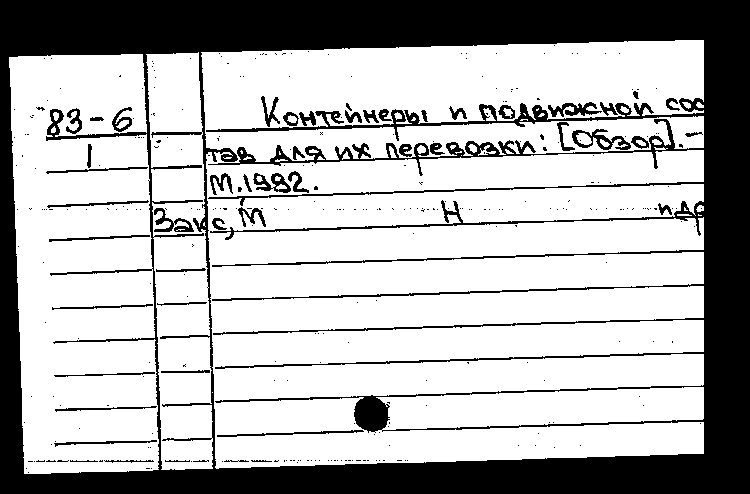 83-6 Контейнеры и подвижной сос
1 тав для их перевозки: [Обзор].-
М.1982.
Закс, М Н идр